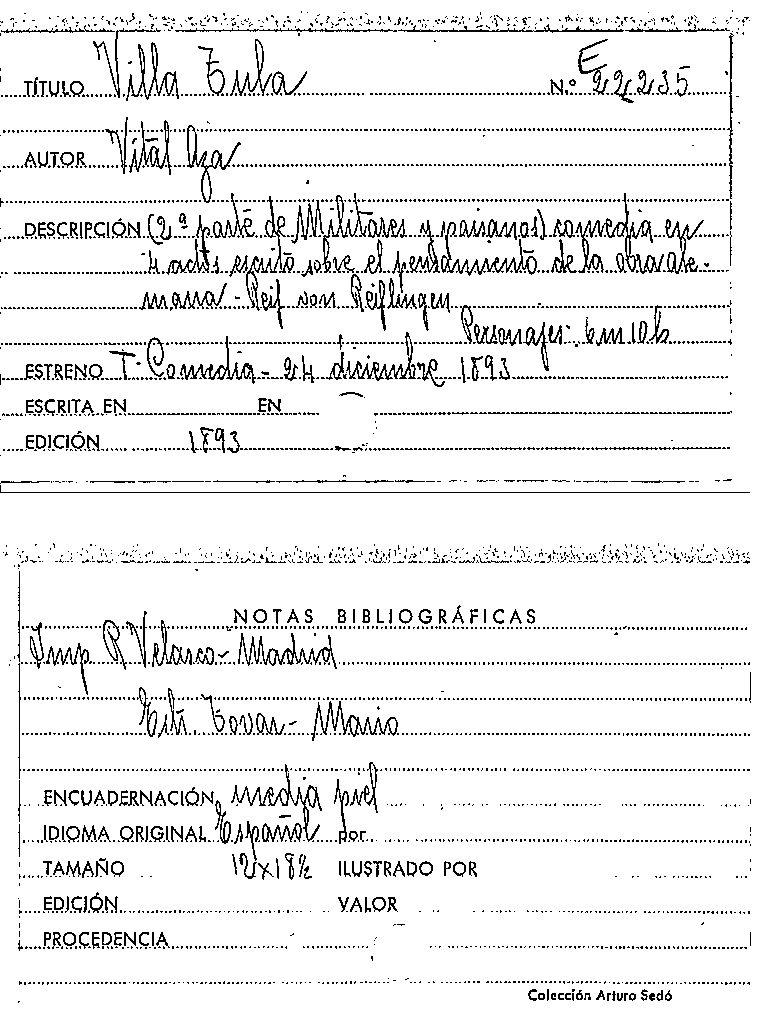 TÍTULO Villa Tula N.º E 22235
AUTOR Vital Aza
DESCRIPCIÓN (2ª parte de Militares y paisanos) comedia en
4 actos escrito sobre el pensamiento de la obra ale-
mana - Reif von Reiflingen
Personajes: 6 m 10 h
ESTRENO T. Comedia - 24 diciembre 1893
ESCRITA EN EN
EDICIÓN 1893
NOTAS BIBLIOGRÁFICAS
Imp R Velasco - Madrid
Estr. Tovar - Mario
ENCUADERNACIÓN media piel
IDIOMA ORIGINAL Español por
TAMAÑO 12x18½ ILUSTRADO POR
EDICIÓN VALOR
PROCEDENCIA
Colección Arturo Sedó